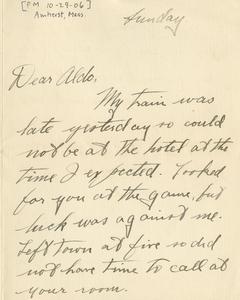 [PM 10-29-06]
Amherst, Mass.
Sunday
Dear Aldo,
My train was
late yesterday so could
not be at the hotel at the
time I expected. Looked
for you at the game, but
luck was against me.
Left town at five so did
not have time to call at
your room.